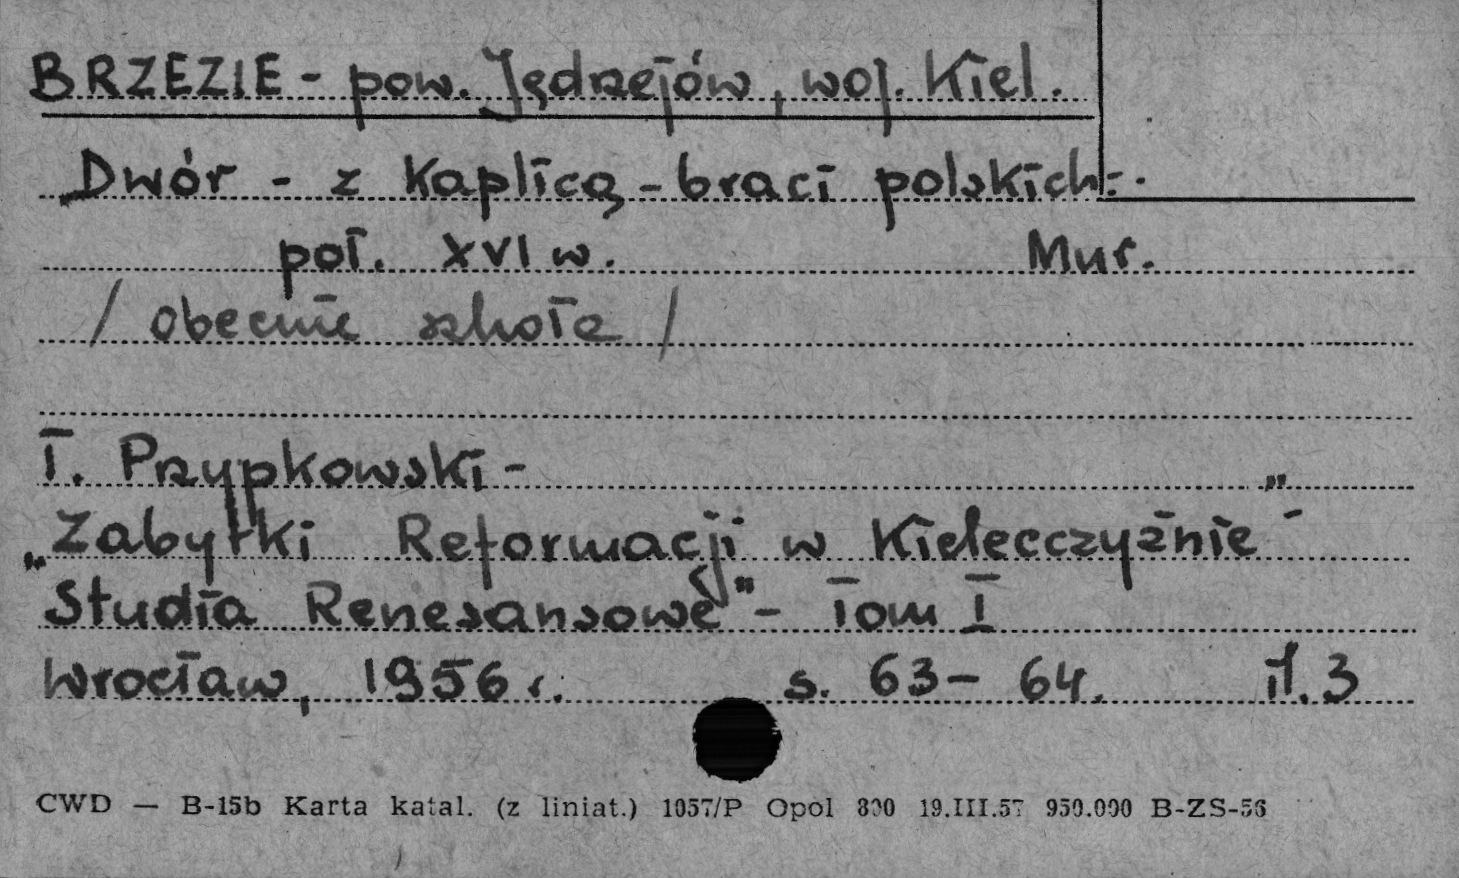 BRZEZIE - pow. Jędrzejów, woj. Kiel.
Dwór - z kaplicą - braci polskich.
poł. XVI w. Mur.
/ obecnie szkoła /
T. Przypkowski -
"Zabytki Reformacji w Kielecczyźnie" -
"Studia Renesansowe" - Tom I
Wrocław, 1956 r. s. 63 - 64. il. 3
CWD — B-15b Karta katal. (z liniat.) 1057/P Opol 800 19.III.57 950.000 B-ZS-56